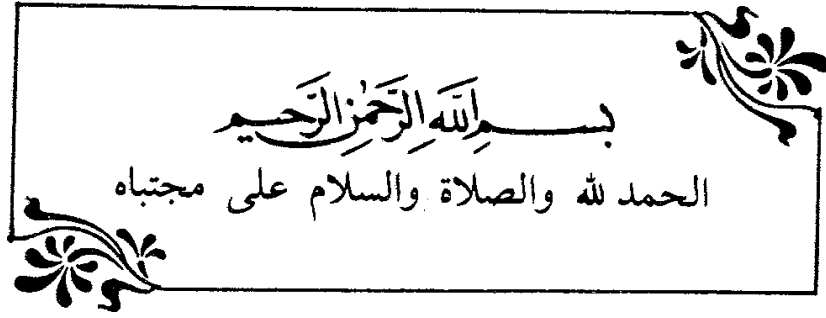 بسم الله الرحمن الرحيم
الحمد لله والصلاة والسلام على مجتباه